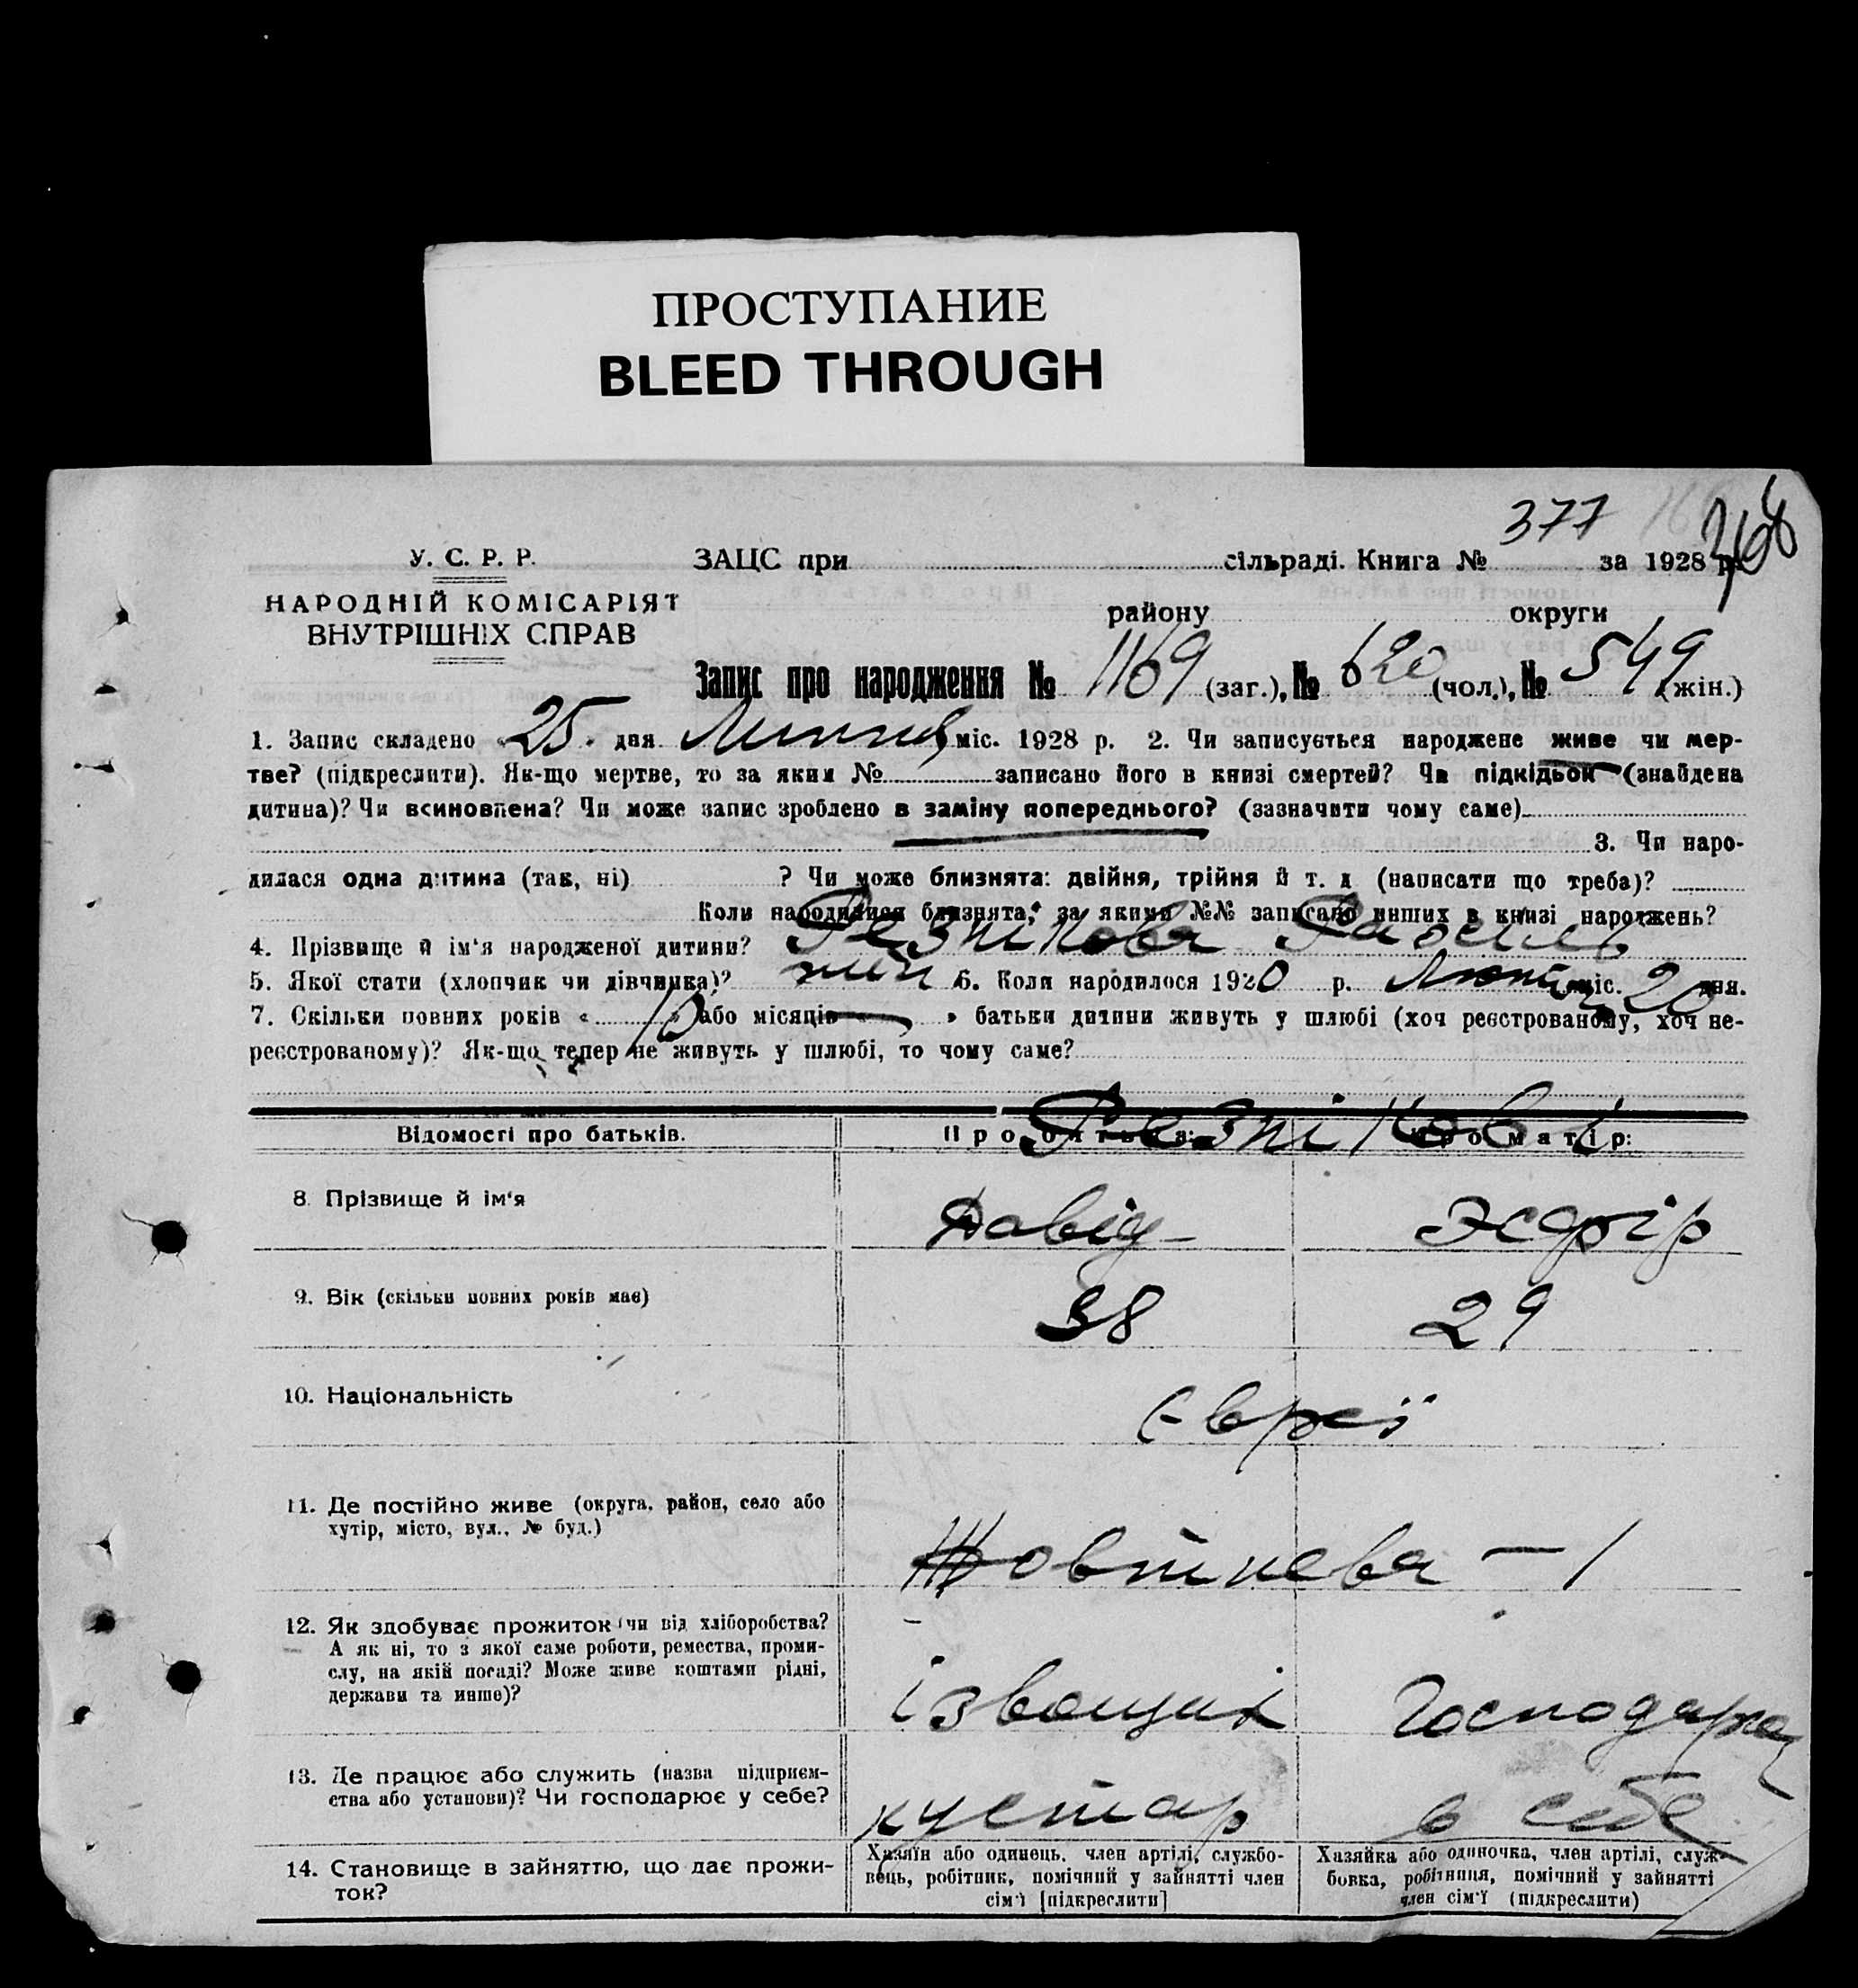 ПРОСТУПАНИЕ
BLEED THROUGH
377
У. С. Р. Р. ЗАЦС при сільраді. Книга № за 1928 р.
НАРОДНІЙ КОМІСАРІЯТ району округи
ВНУТРІШНІХ СПРАВ
Запис про народження № 1169 (заг.), № 620 (чол.), № 549 (жін.)
1. Запис складено «25» дня Липня міс. 1928 р. 2. Чи записується народжене живе чи мер-
тве? (підкреслити). Як-що мертве, то за яким № записано його в книзі смертей? Чи підкідьок (знайдена
дитина)? Чи всиновлена? Чи може запис зроблено в заміну попереднього? (зазначити чому саме)
3. Чи наро-
дилася одна дитина (так, ні) ? Чи може близнята: двійня, трійня й т. д (написати що треба)?
Коли народилися близнята, за якими №№ записано инших в книзі народжень?
4. Прізвище й ім'я народженої дитини? Резнікова
5. Якої стати (хлопчик чи дівчинка)? жін 6. Коли народилося 1920 р. Лютого міс. 20 дня.
7. Скільки повних років « 10 » або місяців « — » батьки дитини живуть у шлюбі (хоч реєстрованому, хоч не-
реєстрованому)? Як-що тепер не живуть у шлюбі, то чому саме?
Резнікові
Відомості про батьків. Про батька: Про матір:
8. Прізвище й ім'я Давід Эсфір
9. Вік (скільки повних років має) 38 29
10. Національність Євреї
11. Де постійно живе (округа, район, село або
хутір, місто, вул., № буд.) Жовтнева — 1
12. Як здобуває прожиток (чи від хліборобства?
А як ні, то з якої саме роботи, ремества, проми-
слу, на якій посаді? Може живе коштами рідні,
держави та инше)? ізвощик Господарка
13. Де працює або служить (назва підприєм-
ства або установи)? Чи господарює у себе? кустар в себе
14. Становище в зайняттю, що дає прожи-
ток?
Хазяїн або одинець, член артілі, службо-
вець, робітник, помічний у зайнятті член
сім'ї [підкреслити]
Хазяйка або одиночка, член артілі, служ-
бовка, робітниця, помічний у зайнятті
член сім'ї (підкреслити)